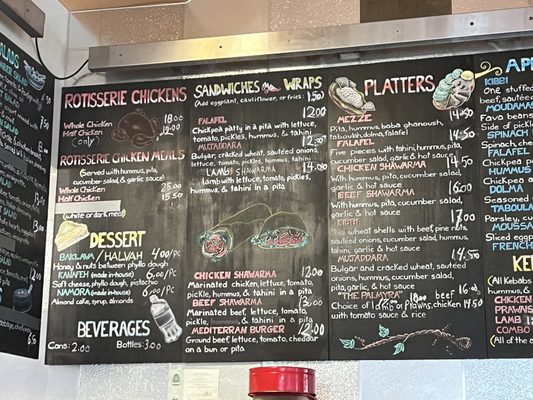 ROTISSERIE CHICKENS
Whole Chicken 18.00
Half Chicken 12.00
(only)
ROTISSERIE CHICKEN MEALS
(Served with hummus, pita,
cucumber salad, & garlic sauce)
Whole Chicken 25.00
Half Chicken 15.50
(white or dark meat)
DESSERT
BAKLAVA / HALVAH 4.00/PC
Honey & nuts between phyllo dough
KANAFEH (made inhouse) 6.00/PC
Soft cheese, phyllo dough, pistachio
NAMORA (made inhouse) 6.00/PC
Almond cake, syrup, almonds
BEVERAGES
Cans: 2.00 Bottles: 3.00
SANDWICHES & WRAPS
(Add eggplant, cauliflower, or fries: 1.50
FALAFEL 12.00
Chickpea patty in a pita with lettuce,
tomato, pickles, hummus, & tahini
MUJADDARA 12.00
Bulgar, cracked wheat, sauteed onions,
lettuce, tomato, pickles, hummus, tahini
LAMB SHAWARMA 14.00
Lamb with lettuce, tomato, pickles,
hummus, & tahini in a pita
CHICKEN SHAWARMA 12.00
Marinated chicken, lettuce, tomato,
pickle, hummus, & tahini in a pita
BEEF SHAWARMA 13.00
Marinated beef, lettuce, tomato,
pickle, hummus, & tahini in a pita
MEDITERRAN BURGER 12.00
Ground beef, lettuce, tomato, cheddar
on a bun or pita
PLATTERS
MEZZE 14.50
Pita, hummus, baba ghanoush,
tabouleh, dolma, falafel
FALAFEL 14.50
Five pieces with tahini, hummus, pita,
cucumber salad, garlic & hot sauce
CHICKEN SHAWARMA 14.50
With hummus, pita, cucumber salad,
garlic & hot sauce
BEEF SHAWARMA 16.00
With hummus, pita, cucumber salad,
garlic & hot sauce
KIBBI 17.00
wheat shells with beef, pine nuts,
sauteed onions, cucumber salad, hummus,
tahini, garlic & hot sauce
MUJADDARA 14.50
Bulgar and cracked wheat, sauteed
onions, hummus, cucumber salad,
pita, garlic & hot sauce
"THE PALMYRA" 18.00 beef 16.50
Choice of lamb or prawns, chicken 14.50
with sauce & tahini
KIBBI
beef, sauteed
MOUDAMAS
Fava beans
Side of pickle
SPINACH
FALAFEL
Chickpea
HUMUS
Chickpea
DOLMA
Seasoned
Parsley, cu
MOUSSA
Sauteed
FRENCH
(All Kebabs
CHICKEN
PRAWNS
LAMB
COMBO
(All of the a